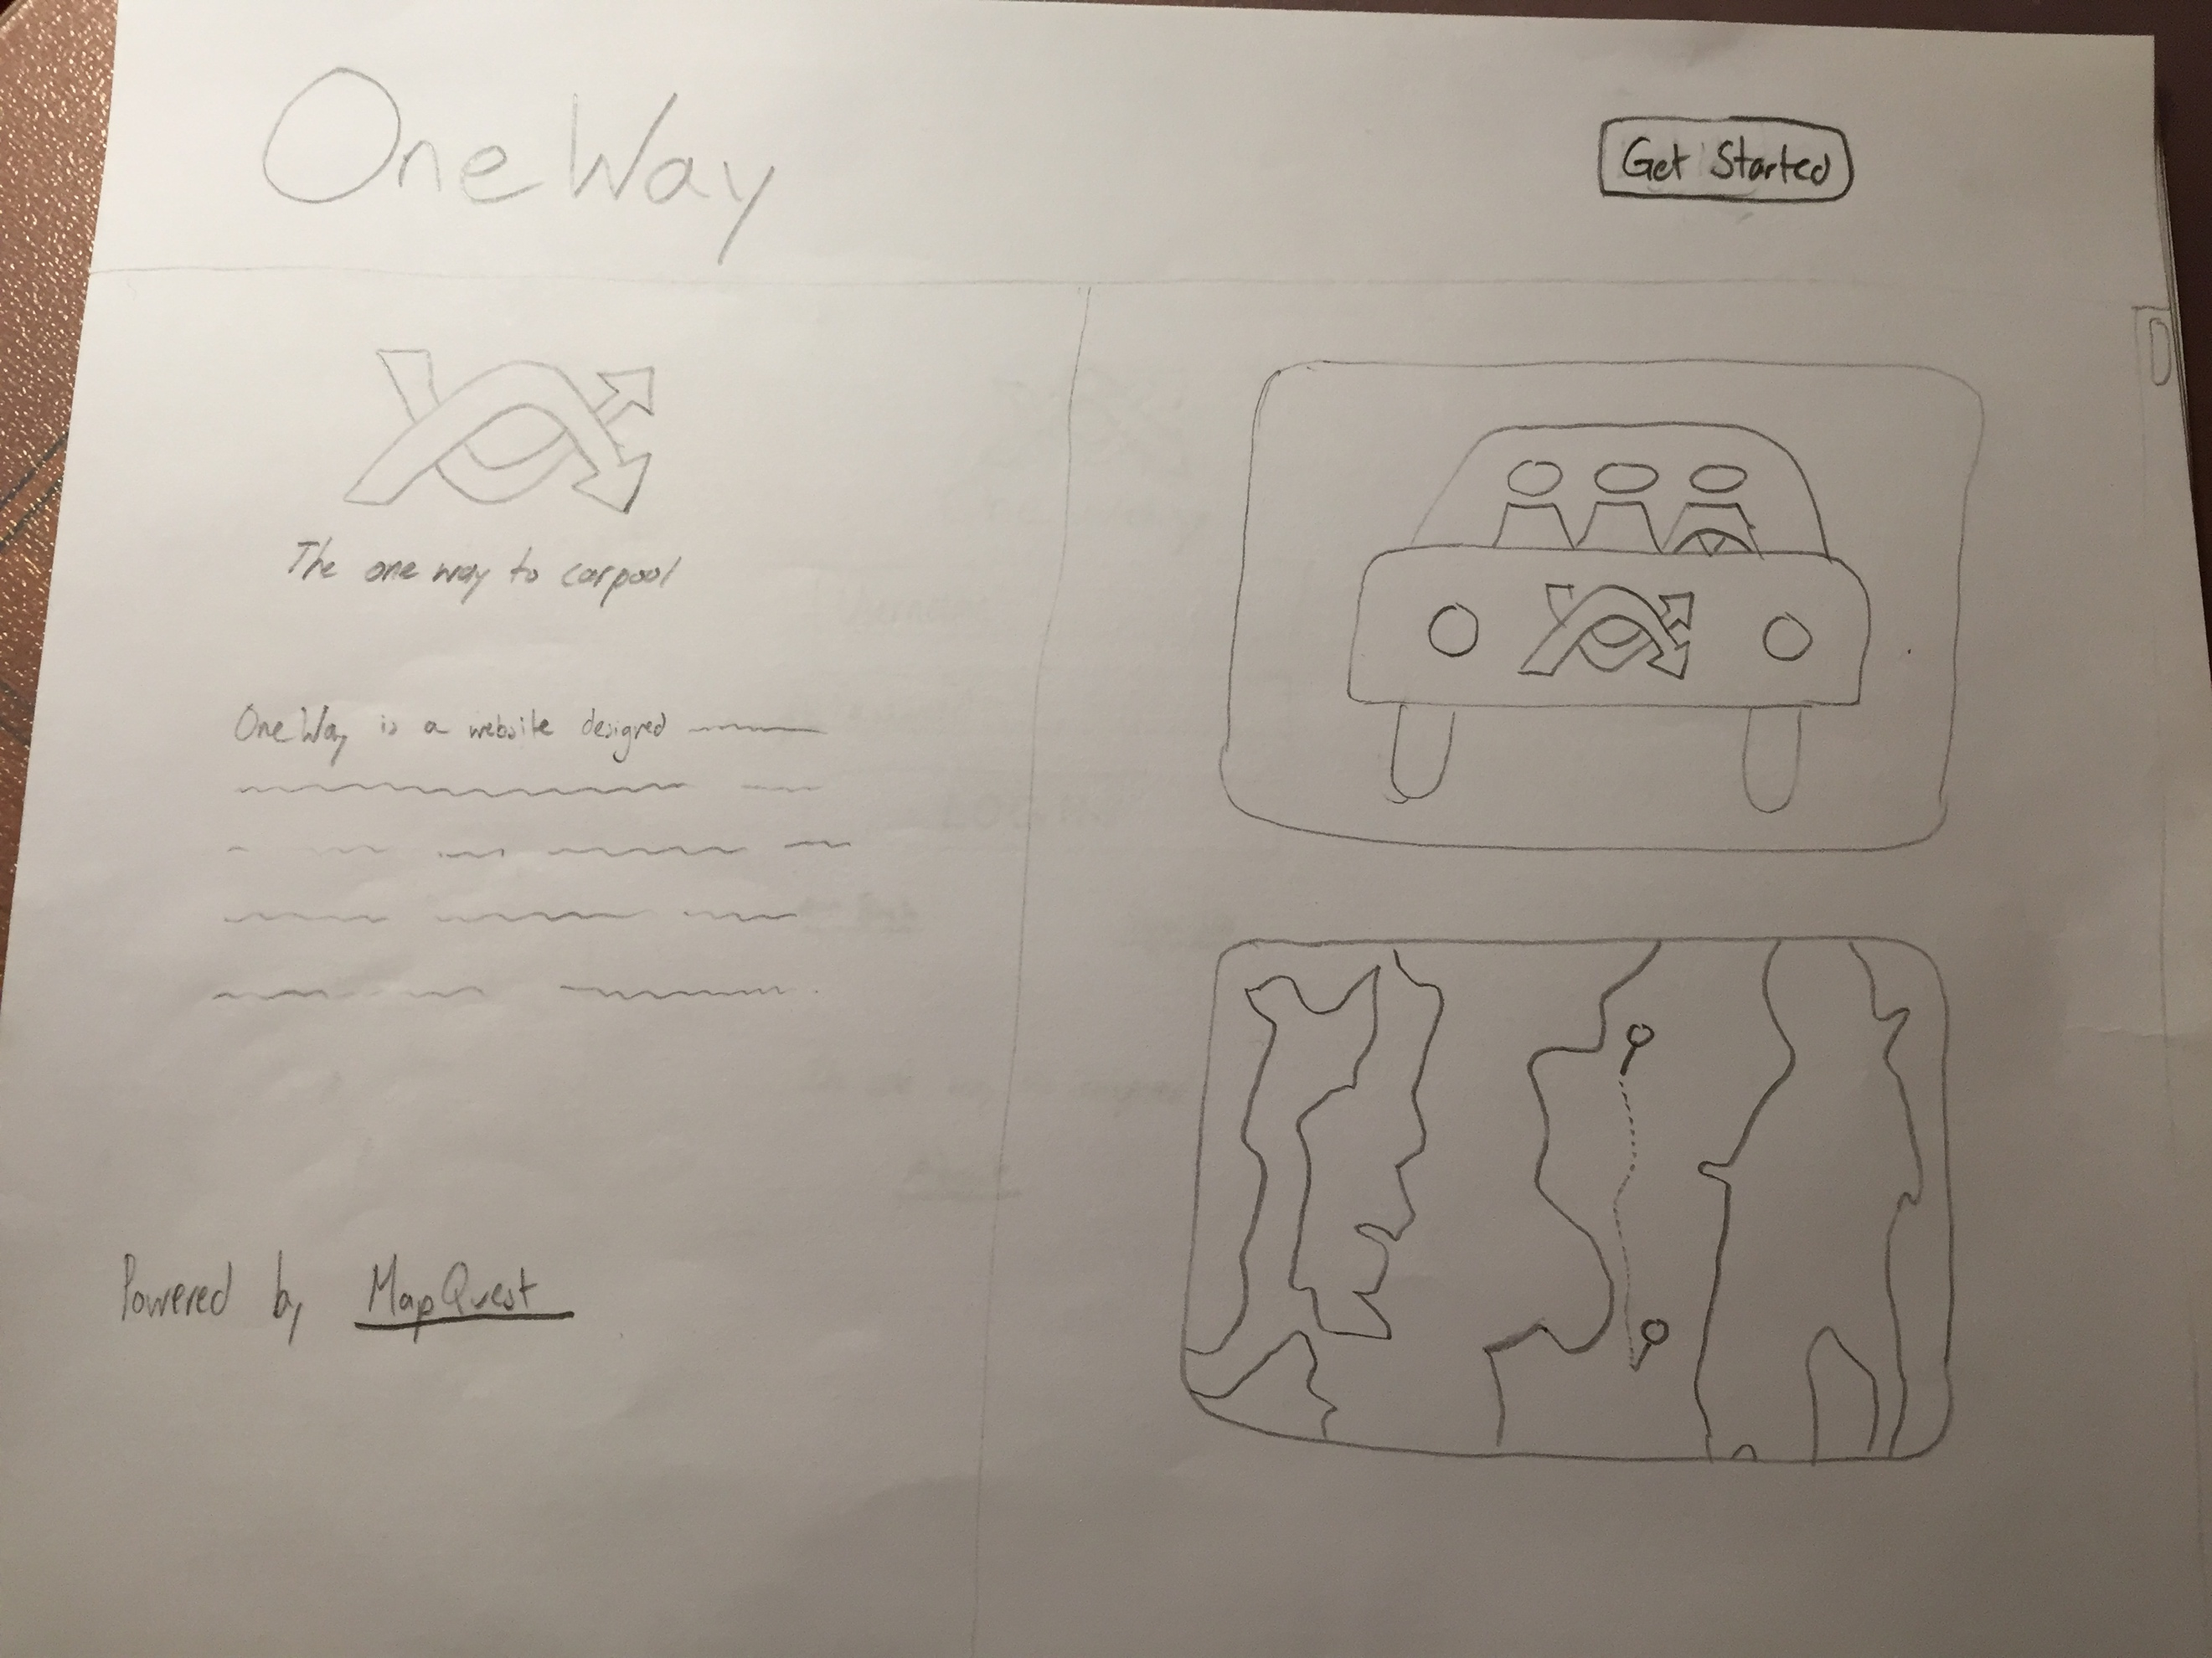 OneWay
Get Started
The one way to carpool
OneWay is a website designed
Powered by MapQuest